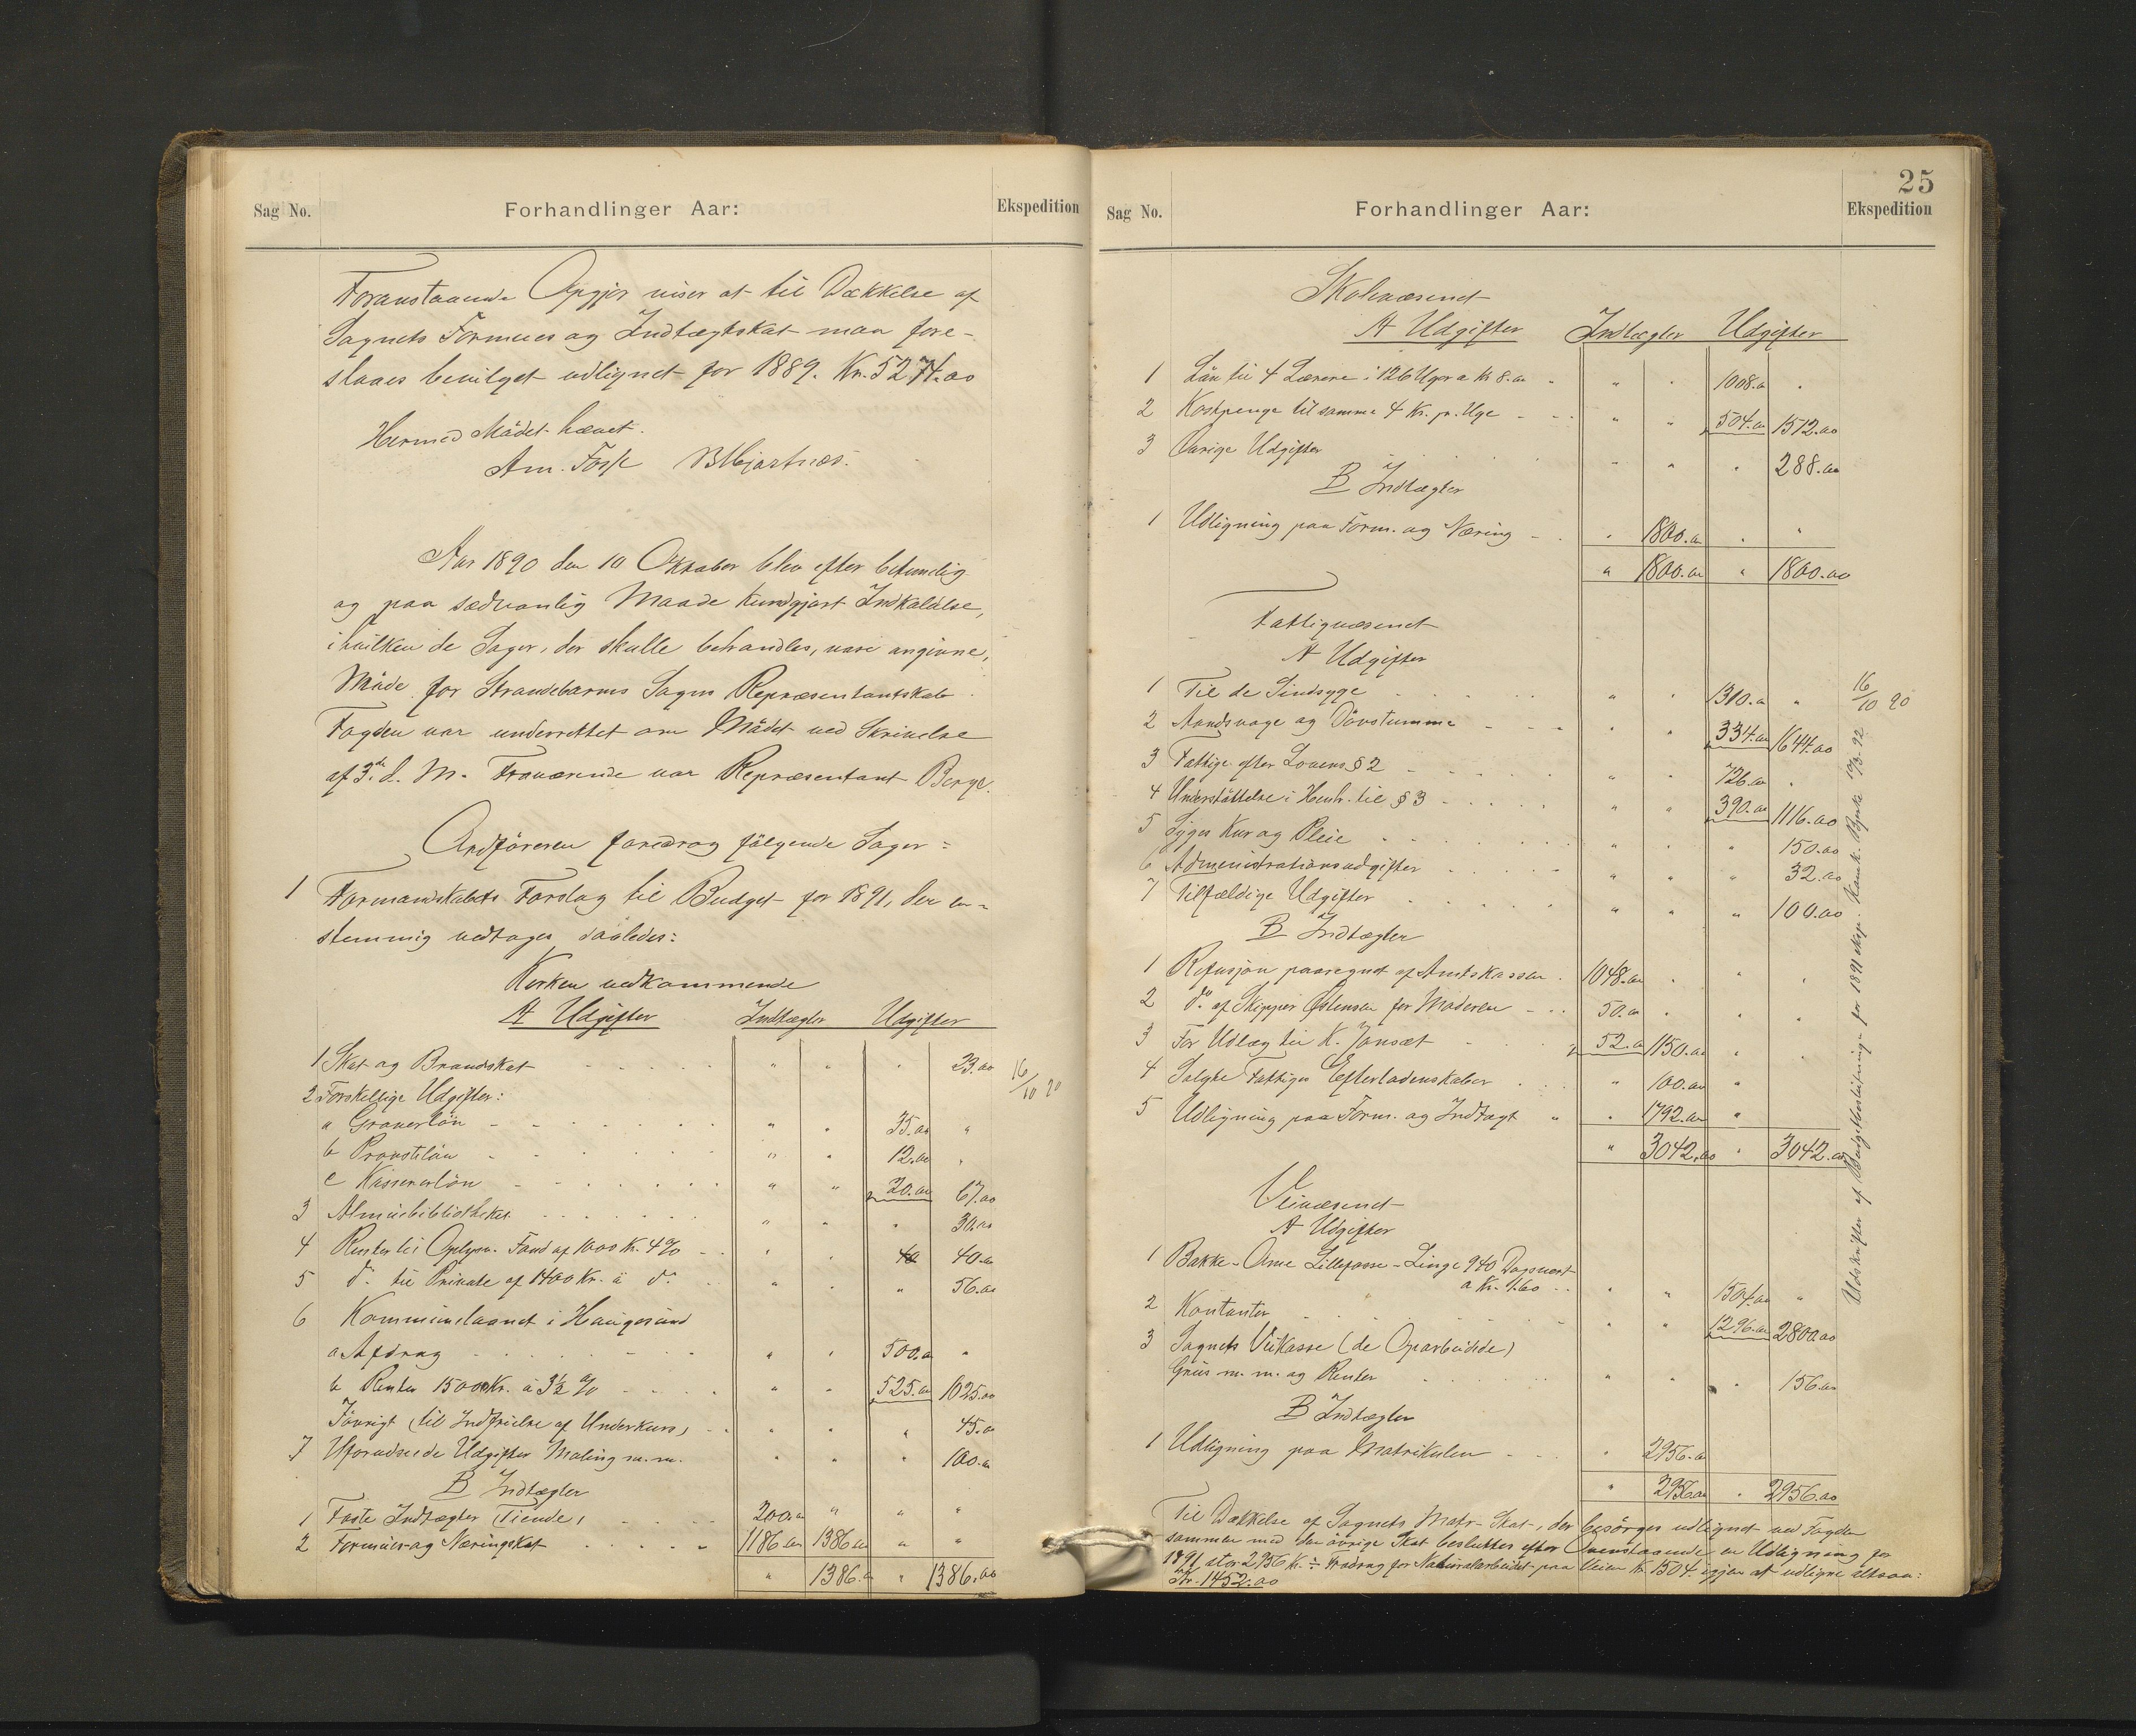 Sag No. Forhandlinger Aar: Ekspedition
Foranstaaende Opgjør viser at til Dækkelse af
Sognets Formues og Indtægtskat maa fore-
slaaes bevilget udlignet for 1889. Kr. 5274.00
Hermed Mödet hævet.
Am. Fosse
Aar 1890 den 10 Oktober blev efter betimelig
og paa sædvanlig Maade Kundgjort Indkaldelse,
i hvilken de Sager, der skulle behandles, vare angivne,
Möde for Strandebarms Sogns Repræsentantskab
Fogden var underrettet om Mödet ved Skrivelse
af 3die d. M. Fraværende var Repræsentant Berge.
Ordföreren foredrog fölgende Sager:
1 Formandskabets Forslag til Budget for 1891, der en-
stemmig vedtages saaledes:
Kirken vedkommende
A Udgifter Indtægter Udgifter
1 Skat og Brandskat " " " 23.00 16/10 90
2 Forskellige Udgifter:
a Graverlön " " 35.00 "
b Provstilön " " 12.00 "
c Kassererlön " " 20.00 67.00
3 Almuebibliotheket " " " 30.00
4 Renter til Oplysn. Fond af 1000 Kr. 4% " " 40 40.00
5 do til Private af 1400 Kr. à do " " " 56.00
6 Kommunelaanet i Haugesund
a Afdrag " " 500.00 "
b Renter 15000 Kr. à 3½ % " " 525.00 1025.00
Iövrigt til Indfrielse af Underkurs, " " " 45.00
7 Uforudseede Udgifter Maling m.m. " " " 100.00
B Indtægter
1 Faste Indtægter (Tiende) 200.00 " " "
2 Formues og Næringskat 1186.00 1386.00 " "
" 1386.00 " 1386.00
25
Sag No. Forhandlinger Aar: Ekspedition
Skolevæsenet
A Udgifter Indtægter Udgifter
1 Lön til 4 Lærere i 126 Uger a Kr 8.00 " " 1008.00 "
2 Kostpenge til samme 4 Kr. pr. Uge " " 504.00 1512.00
3 Övrige Udgifter " " " 288.00
B Indtægter
1 Udligning paa Form. og Næring " 1800.00 " "
" 1800.00 " 1800.00
Fattigvæsenet
A Udgifter
1 Til de Sindsyge " " 1310.00 " 16/10 90
2 Aandsvage og Dövstumme " " 334.00 1644.00
3 Fattige efter Lovens § 2 " " 726.00 "
4 Understöttelse i Henh. til § 3 " " 390.00 1116.00
5 Syges Kur og Pleie " " " 150.00
6 Administrationsudgifter " " " 32.00
7 Tilfældige Udgifter " " " 100.00
B Indtægter
1 Refusjon paaregnet af Amtskassen 1048.00 " " "
2 do af Skipper Östensen for Moderen 50.00 " " "
3 For Udlæg til K. 52.00 1150.00 " "
4 Solgte Fattiges Efterladenskaber " 100.00 "
5 Udligning paa Form. og Indtægt " 1792.00 "
" 3042.00 " 3042.00
Udskrifter af Budgetbeslutninger for 1891 eksp.
Veivæsenet
A Udgifter
1 Bakke - Lillefosse - Linge 940 Dagsværk
a Kr. 1.60 " " 1504.00 "
2 Kontanter " " 1296.00 2800.00
3 Sognets Veikasse (de Oparbeidede)
Grus m. m. og Renter " " " 156.00
B Indtægter
1 Udligning paa Matrikulen " 2956.00
" 2956.00 " 2956.00
Til Dækkelse af Sognets Matr-Skat, der besörges udlignet ved Fogden
sammen med den övrige Skat besluttes efter Ovenstaaende en Udligning for
1891 stor 2956 Kr. ÷ Fradrag for Naturalarbeidet paa Veien Kr 1504. igjen at udligne altsaa:
Kr. 1452.00